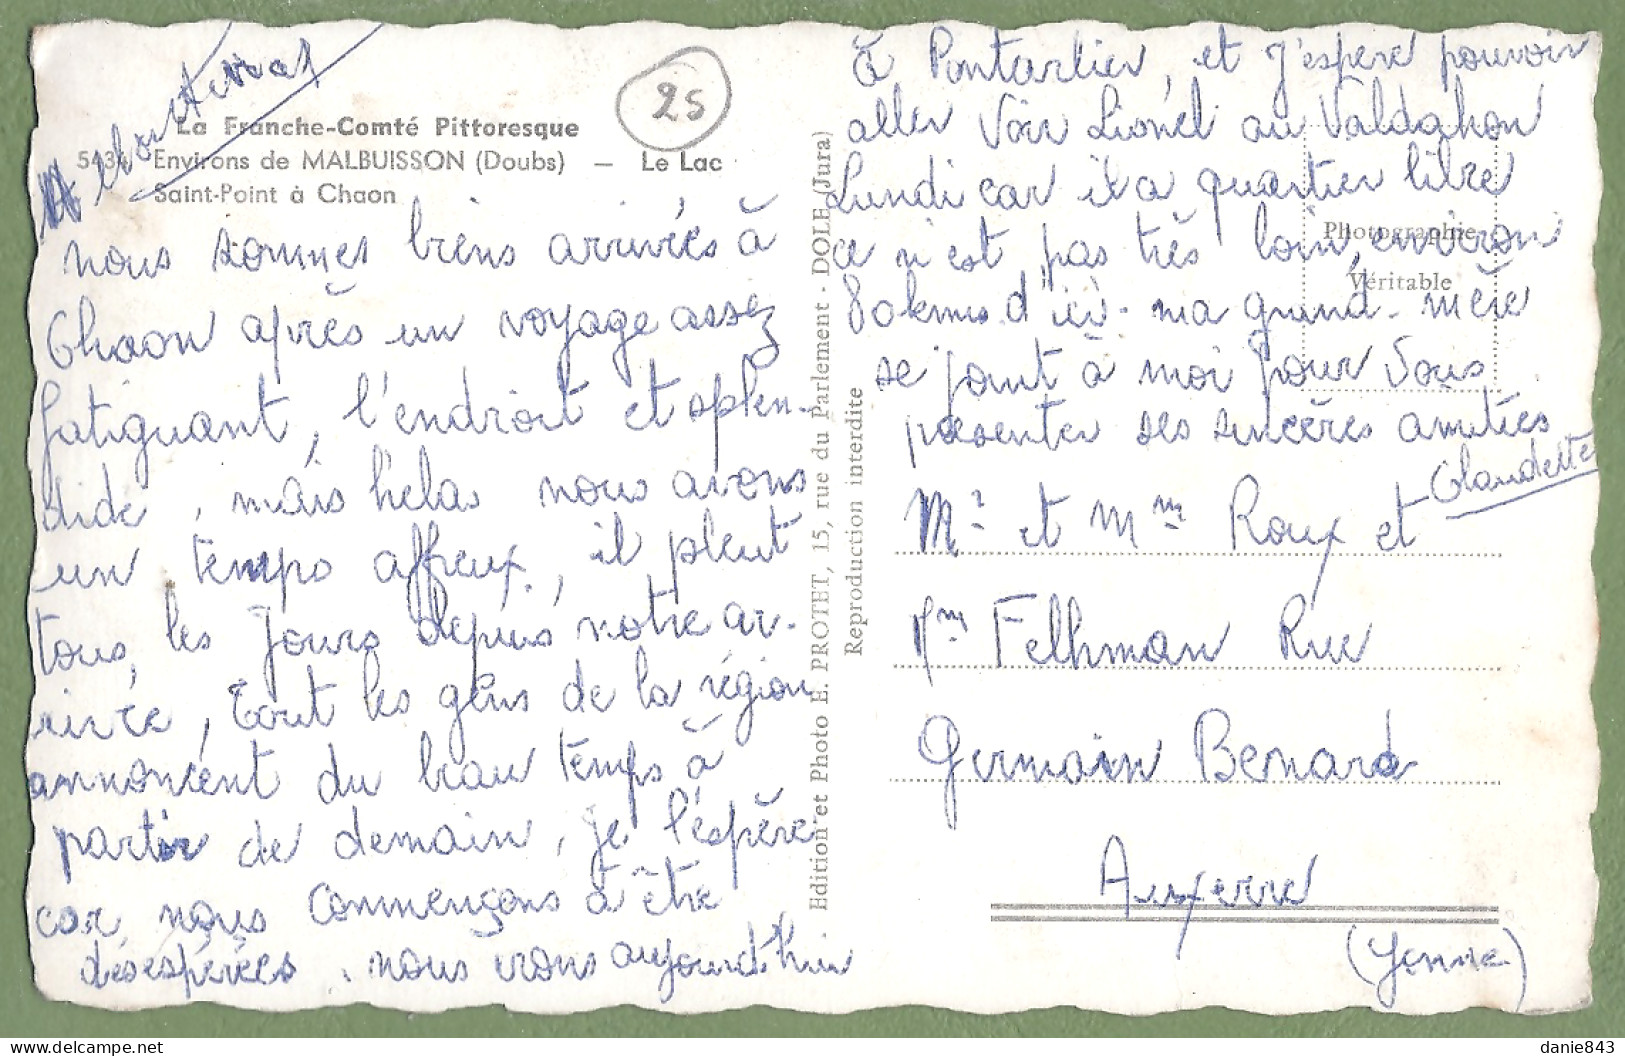 25
La Franche-Comté Pittoresque
5434 Environs de MALBUISSON (Doubs) — Le Lac
Saint-Point à Chaon
nous sommes biens arrivées à
Chaon après un voyage assez
fatiguant, l'endroit et splen-
dide, mais hélas nous avons
un temps affreux, il pleut
tous les jours depuis notre ar-
rivée, tout les gens de la région
annoncent du beau temps à
partir de demain, je l'éspère
car nous commençons à être
désespérées. nous irons aujourd'hui
Edition et Photo E. PROTET, 15, rue du Parlement - DOLE (Jura)
Reproduction interdite
à Pontarlier, et j'espere pouvoir
aller voir Lionel au Valdahon
Lundi car il a quartier libre
ce n'est pas très loin, environ
30 kms d'ici. ma grand-mère
se joint à moi pour vous
présenter ses sincères amitiés
Claudette
Photographie
Véritable
Mr et Mme Roux et
Mme Felhman Rue
Germain Benard
Auxerre
(Yonne)
danie843